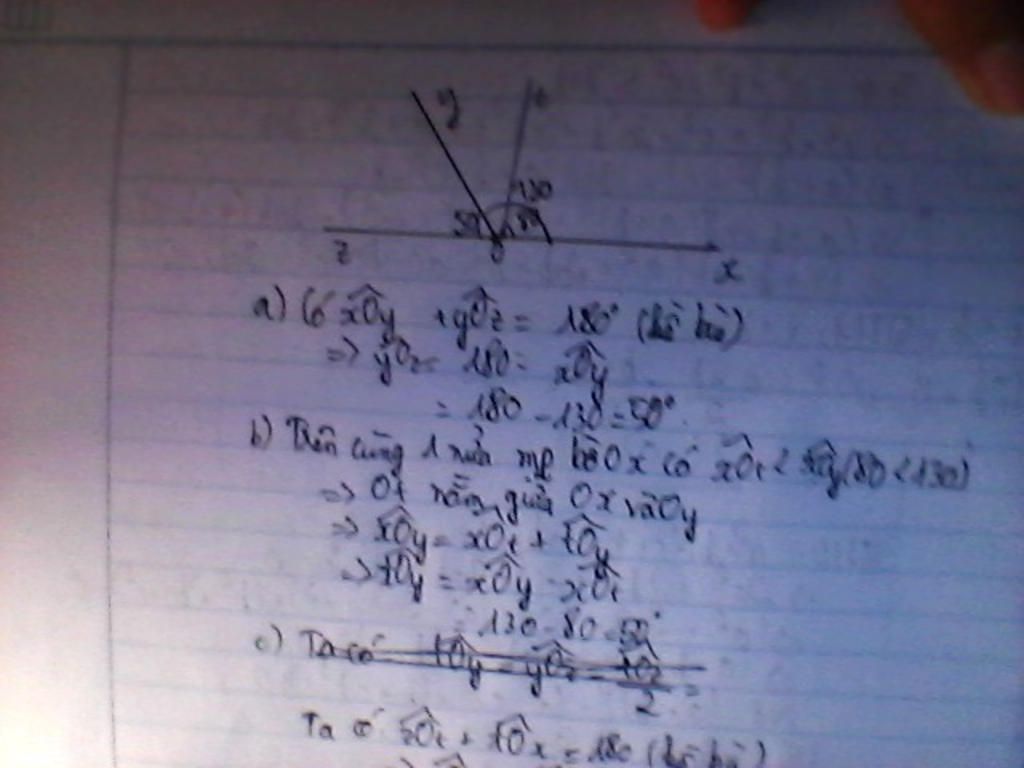 y t
130
50 80
z O x
a) Có xÔy + yÔz = 180° (kề bù)
=> yÔz = 180 - xÔy
= 180 - 130 = 50°
b) Trên cùng 1 nửa mp bờ Ox có xÔt < xÔy (80 < 130)
=> Ot nằm giữa Ox và Oy
=> xÔy = xÔt + tÔy
=> tÔy = xÔy - xÔt
= 130 - 80 = 50°
c) Ta có tÔy = yÔz = tÔz/2 =
Ta có zÔt + tÔx = 180 (kề bù)